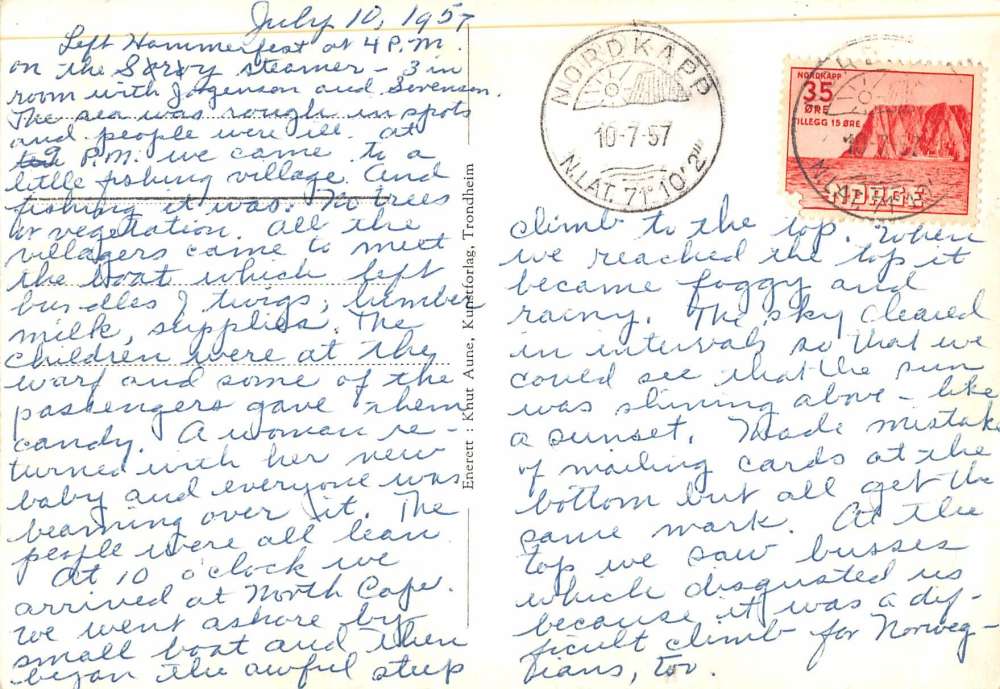 July 10, 1957
Left Hammerfest at 4 P.M.
on the Söröy steamer - 3 in
room with Jorgenson and Sorenson.
The sea was rough in spots
and people were ill. At
P.M. we came to a
little fishing village. And
fishing it was. No trees
or vegetation. All the
villagers came to meet
the boat which left
bundles of twigs, lumber
milk, supplies. The
children were at the
warf and some of the
passengers gave them
candy. A woman re-
turned with her new
baby and everyone was
beaming over it. The
people were all lean
At 10 o'clock we
arrived at North Cape.
We went ashore by
small boat and then
began the awful steep
Enerett : Knut Aune, Kunstforlag, Trondheim
NORDKAPP
10-7-57
N.LAT. 71° 10' 2"
NORDKAPP
35
ØRE
TILLEGG 15 ØRE
NORGE
10-7-57
N.LAT. 71°
climb to the top. When
we reached the top it
became foggy and
rainy. The sky cleared
in intervals so that we
could see that the sun
was shining above - like
a sunset. Made mistake
of mailing cards at the
bottom but all get the
same mark. At the
top we saw busses
which disgusted us
because it was a dif-
ficult climb for Norweg-
ians, too.